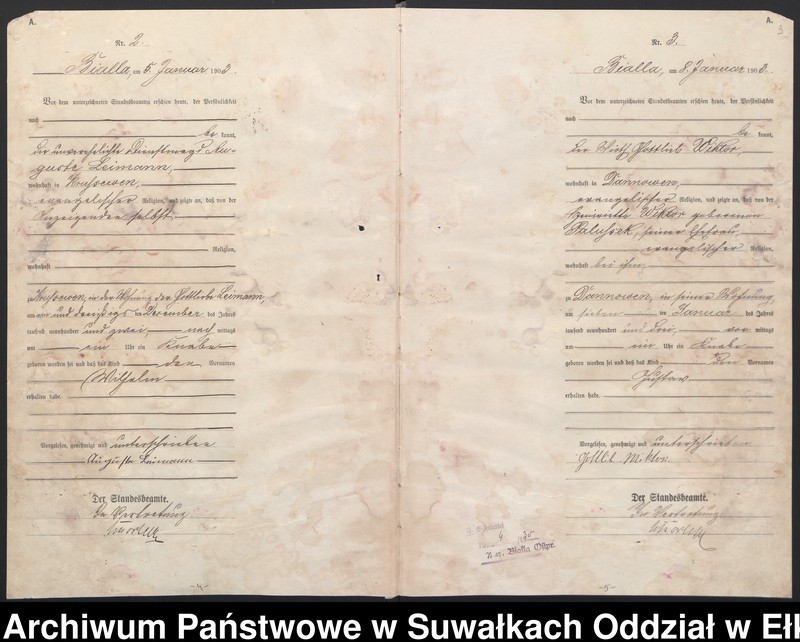 A.
Nr. 2.
Bialla, am 5. Januar 1903.
Vor dem unterzeichneten Standesbeamten erschien heute, der Persönlichkeit
nach
be kannt,
die unverehelichte Dienstmagd Au-
guste Leimann,
wohnhaft in Krussewen,
evangelischer Religion, und zeigte an, daß von der
Anzeigenden selbst
Religion,
wohnhaft
zu Krussewen, in der Wohnung des Gottlieb Leimann
am ein und dreißigsten Dezember des Jahres
tausend neunhundert und zwei, nach mittags
um ein Uhr ein Knabe
geboren worden sei und daß das Kind den Vornamen
Wilhelm
erhalten habe.
Vorgelesen, genehmigt und unterschrieben
Auguste Leimann
Der Standesbeamte.
In Vertretung
-4-
A.
3
Nr. 3.
Bialla, am 8. Januar 1903.
Vor dem unterzeichneten Standesbeamten erschien heute, der Persönlichkeit
nach
be kannt,
der Wirth Gottlieb Wiktor,
wohnhaft in Dannowen,
evangelischer Religion, und zeigte an, daß von der
Henriette Wiktor geborenen
seiner Ehefrau,
evangelischer Religion,
wohnhaft bei ihm,
zu Dannowen, in seiner Wohnung,
am sieben ten Januar des Jahres
tausend neunhundert und drei, vor mittags
um Uhr ein Knabe
geboren worden sei und daß das Kind den Vornamen
Gustav
erhalten habe.
Vorgelesen, genehmigt und unterschrieben
Der Standesbeamte.
In Vertretung
Bialla Ostpr.
-5-
Archiwum Państwowe w Suwałkach Oddział w Eł